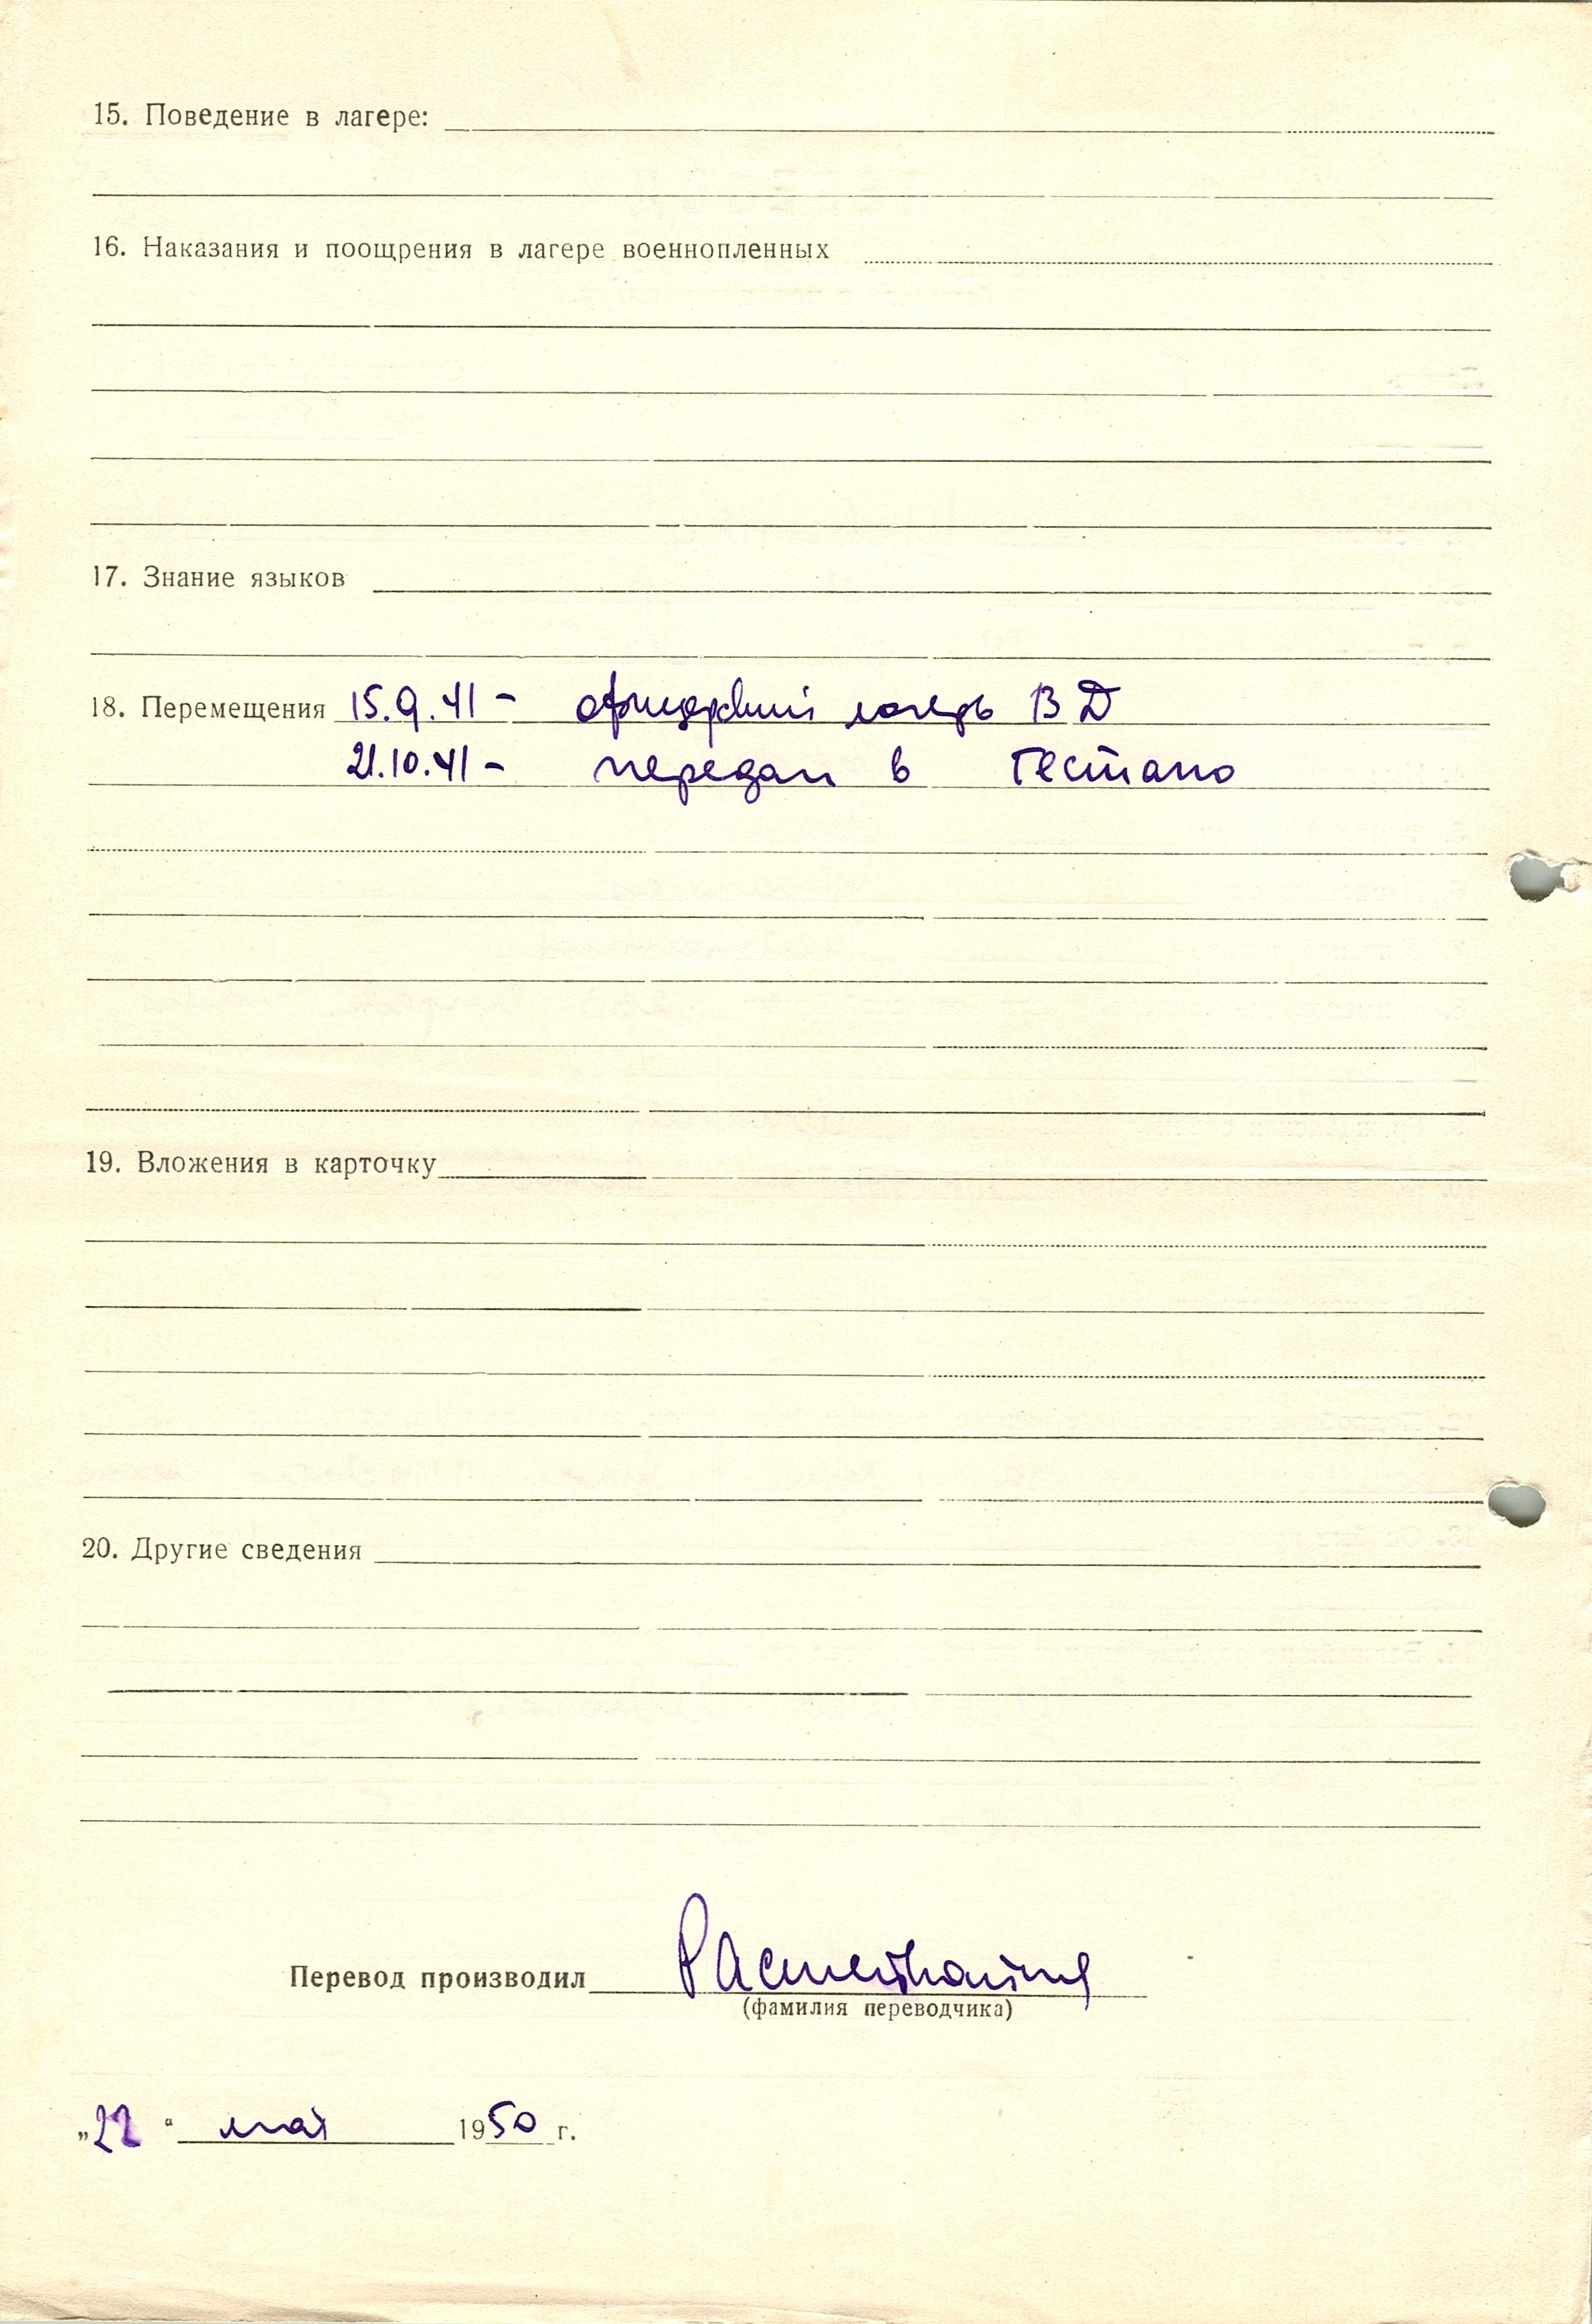 15. Поведение в лагере:
16. Наказания и поощрения в лагере военнопленных
17. Знание языков
18. Перемещения 15.9.41 - офицерский лагерь ВД
21.10.41 - передан в Гестапо
19. Вложения в карточку
20. Другие сведения
Перевод производил
(фамилия переводчика)
„22“ мая 1950 г.